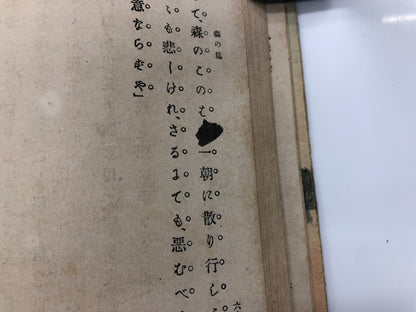 森の嵐
て、森のこのむ 一朝に散り行し
も悲しけれ、さるまでも、悪むべ
意ならむや」
六